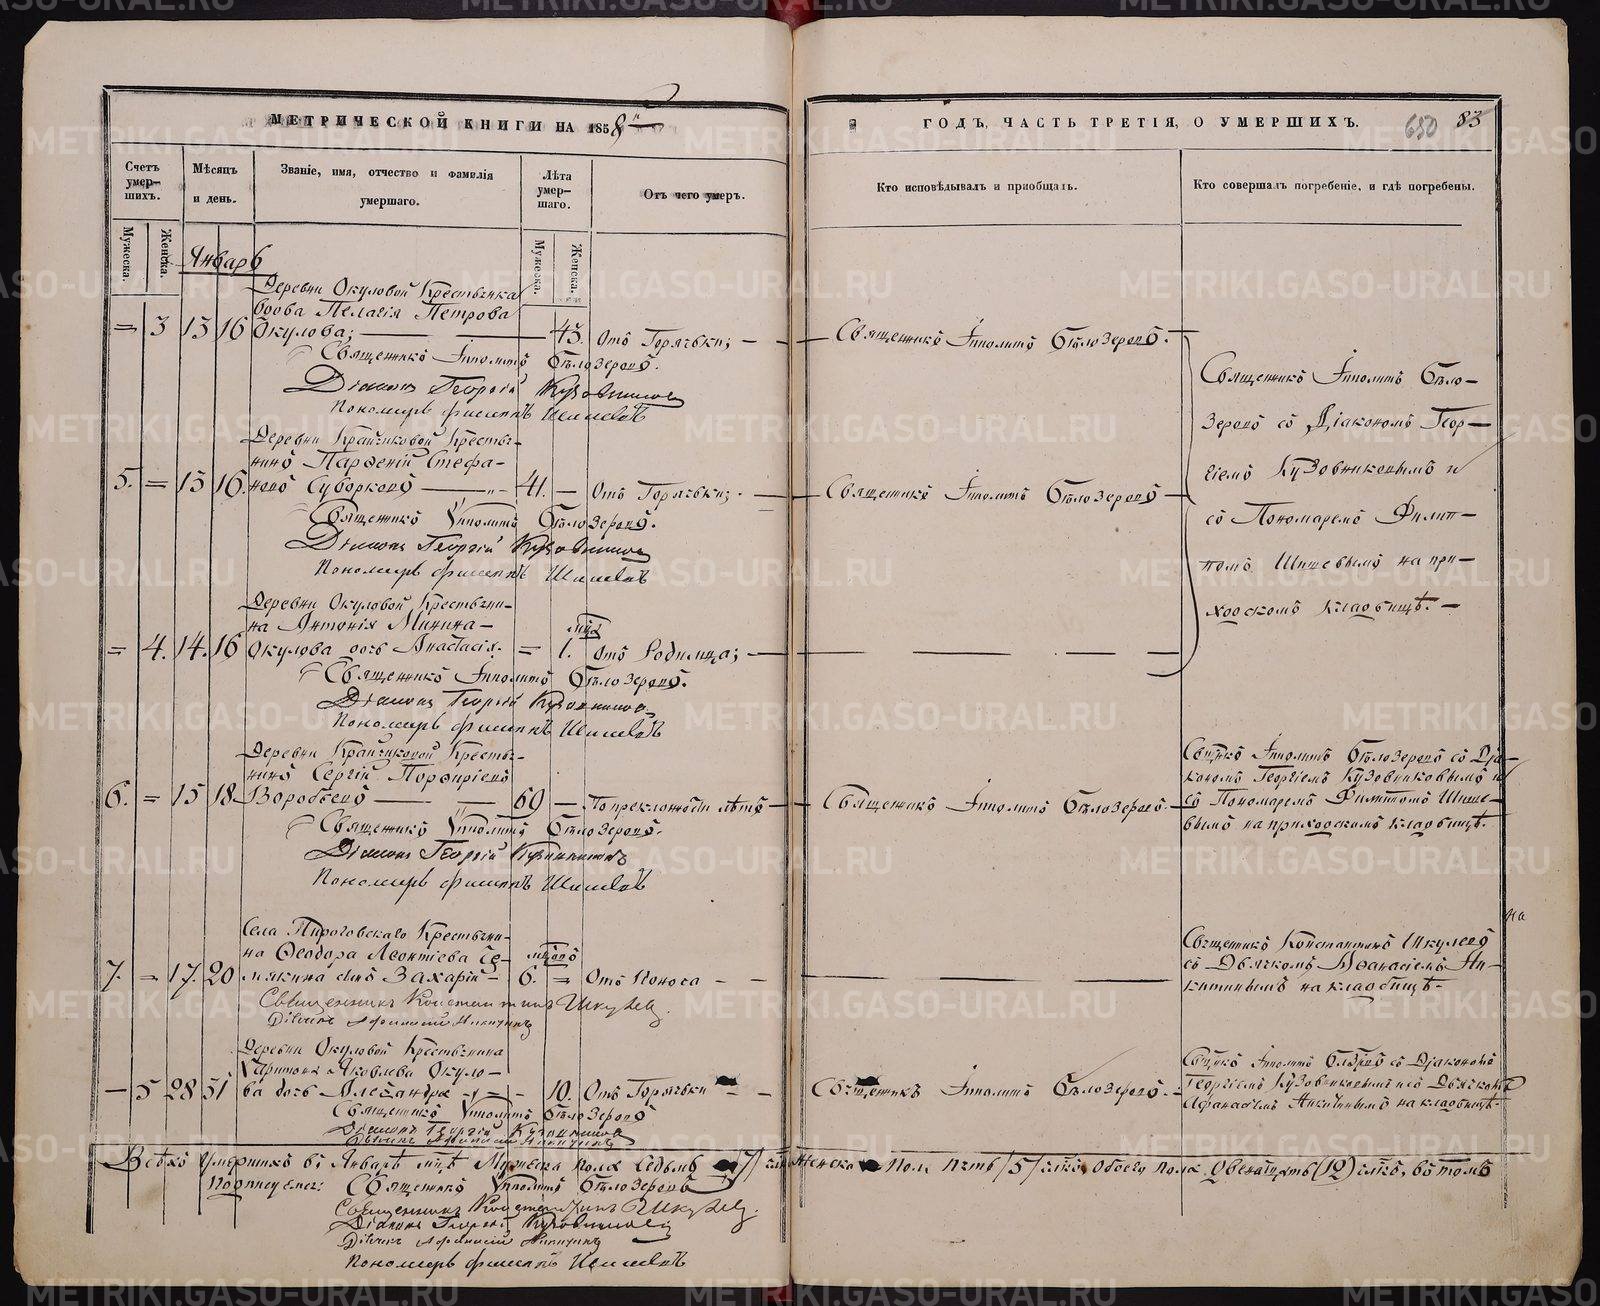 МЕТРИЧЕСКОЙ КНИГИ НА 1858
ГОДЪ, ЧАСТЬ ТРЕТІЯ, О УМЕРШИХЪ.
650 83
Счетъ умер-шихъ.
Мѣсяцъ и день.
Званіе, имя, отчество и фамилія умершаго.
Лѣта умер-шаго.
Отъ чего умеръ.
Кто исповѣдывалъ и пріобщалъ.
Кто совершалъ погребеніе, и гдѣ погребены.
Мужеска.
Женска.
Мужеска.
Женска.
Январь
Деревни Окуловой Крестьянка
вдова Пелагія Петрова
= 3 13 16 Окулова; — 43. Отъ Горячки; — Священникъ Ипполитъ Бѣлозеровъ.
Священникъ Ипполитъ Бѣлозеровъ.
Діаконъ Георгій Кузовниковъ
Пономарь Филиппъ Шишевъ
Священникъ Ипполитъ Бѣло-
зеровъ съ Діакономъ Геор-
гіемъ Кузовниковымъ и
съ Пономаремъ Филип-
помъ Шишевымъ на при-
ходскомъ кладбищѣ. —
Деревни Крайчиковой Крестья-
нинъ Парфеній Стефа-
5. = 13 16. новъ Суборковъ — 41. — Отъ Горячки; — Священникъ Ипполитъ Бѣлозеровъ
Священникъ Ипполитъ Бѣлозеровъ.
Діаконъ Георгій Кузовниковъ
Пономарь Филиппъ Шишевъ
Деревни Окуловой Крестьяни-
на Антонія Минина
= 4. 14. 16 Окулова дочь Анастасія. = 1. Отъ Родимца; —
Священникъ Ипполитъ Бѣлозеровъ.
Діаконъ Георгій Кузовниковъ
Пономарь Филиппъ Шишевъ
Деревни Крайчиковой Крестья-
нинъ Сергій Порфиріевъ
6. = 15 18 Воробьевъ — 60 — По преклонности лѣтъ — Священникъ Ипполитъ Бѣлозеровъ. —
Священникъ Ипполитъ Бѣлозеровъ.
Діаконъ Георгій Кузовниковъ
Пономарь Филиппъ Шишевъ
Свщнкъ Ипполитъ Бѣлозеровъ съ Діа-
кономъ Георгіемъ Кузовниковымъ и
съ Пономаремъ Филиппомъ Шише-
вымъ на приходскомъ кладбищѣ.
Села Пироговскаго Крестьяни-
на Феодора Леонтіева
7. = 17. 20 сынъ Захарій — 6. = Отъ Поноса —
Священникъ Константинъ
Дьячекъ Афанасій Никитинъ
на
Священникъ Константинъ
съ Дьячкомъ Афанасіемъ Ни-
китинымъ на кладбищѣ.
Деревни Окуловой Крестьянина
Харитона Яковлева Окуло-
— 5 28 31 ва дочь Александра — 10. Отъ Горячки — Священникъ Ипполитъ Бѣлозеровъ. —
Священникъ Ипполитъ Бѣлозеровъ
Діаконъ Георгій Кузовниковъ
Дьячекъ Афанасій Никитинъ
Свщнкъ Ипполитъ Бѣлозеровъ съ Діакономъ
Георгіемъ Кузовниковымъ и съ Дьячкомъ
Афанасіемъ Никитинымъ на кладбищѣ.
Всѣхъ умершихъ въ Январѣ мцѣ Мужеска пола Седьмь /7/ Женска пола Пять /5/ Обоего пола Двенатцать (12) въ томъ
Подписуемсь: Священникъ Ипполитъ Бѣлозеровъ
Священникъ Константинъ
Діаконъ Георгій Кузовниковъ
Дьячекъ Афанасій Никитинъ
Пономарь Филиппъ Шишевъ
METRIKI.GASO-URAL.RU